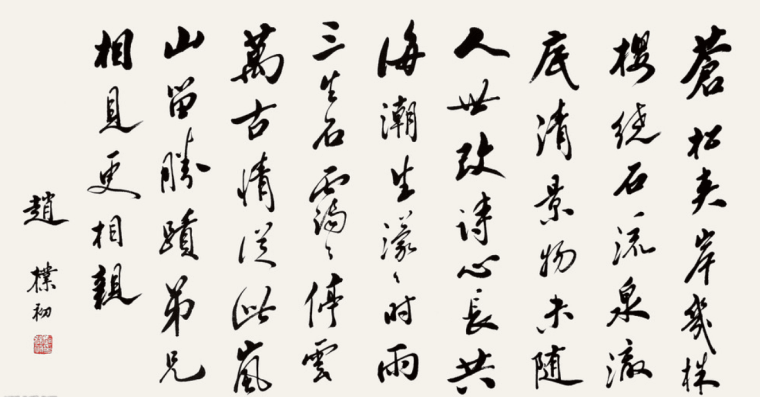 蒼松夾岸幾株
櫻繞石流泉澈
底清景物未随
人世改詩心長共
海潮生濛々时雨
三生石靄々停雲
萬古情從此嵐
山留勝蹟弟兄
相見更相親
趙樸初